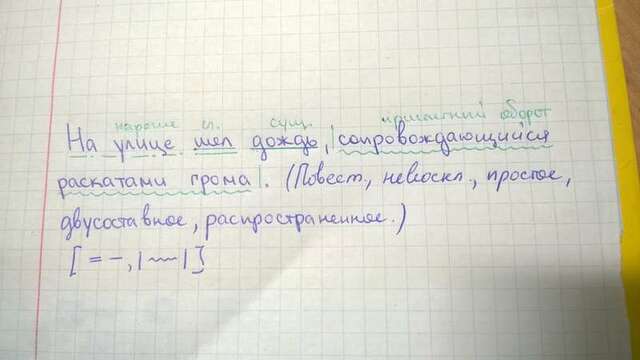 наречие гл. сущ. причастный оборот
На улице шел дождь, |сопровождающийся
раскатами грома|. (Повест., невоскл., простое,
двусоставное, распространенное.)
[= –, |~~|]